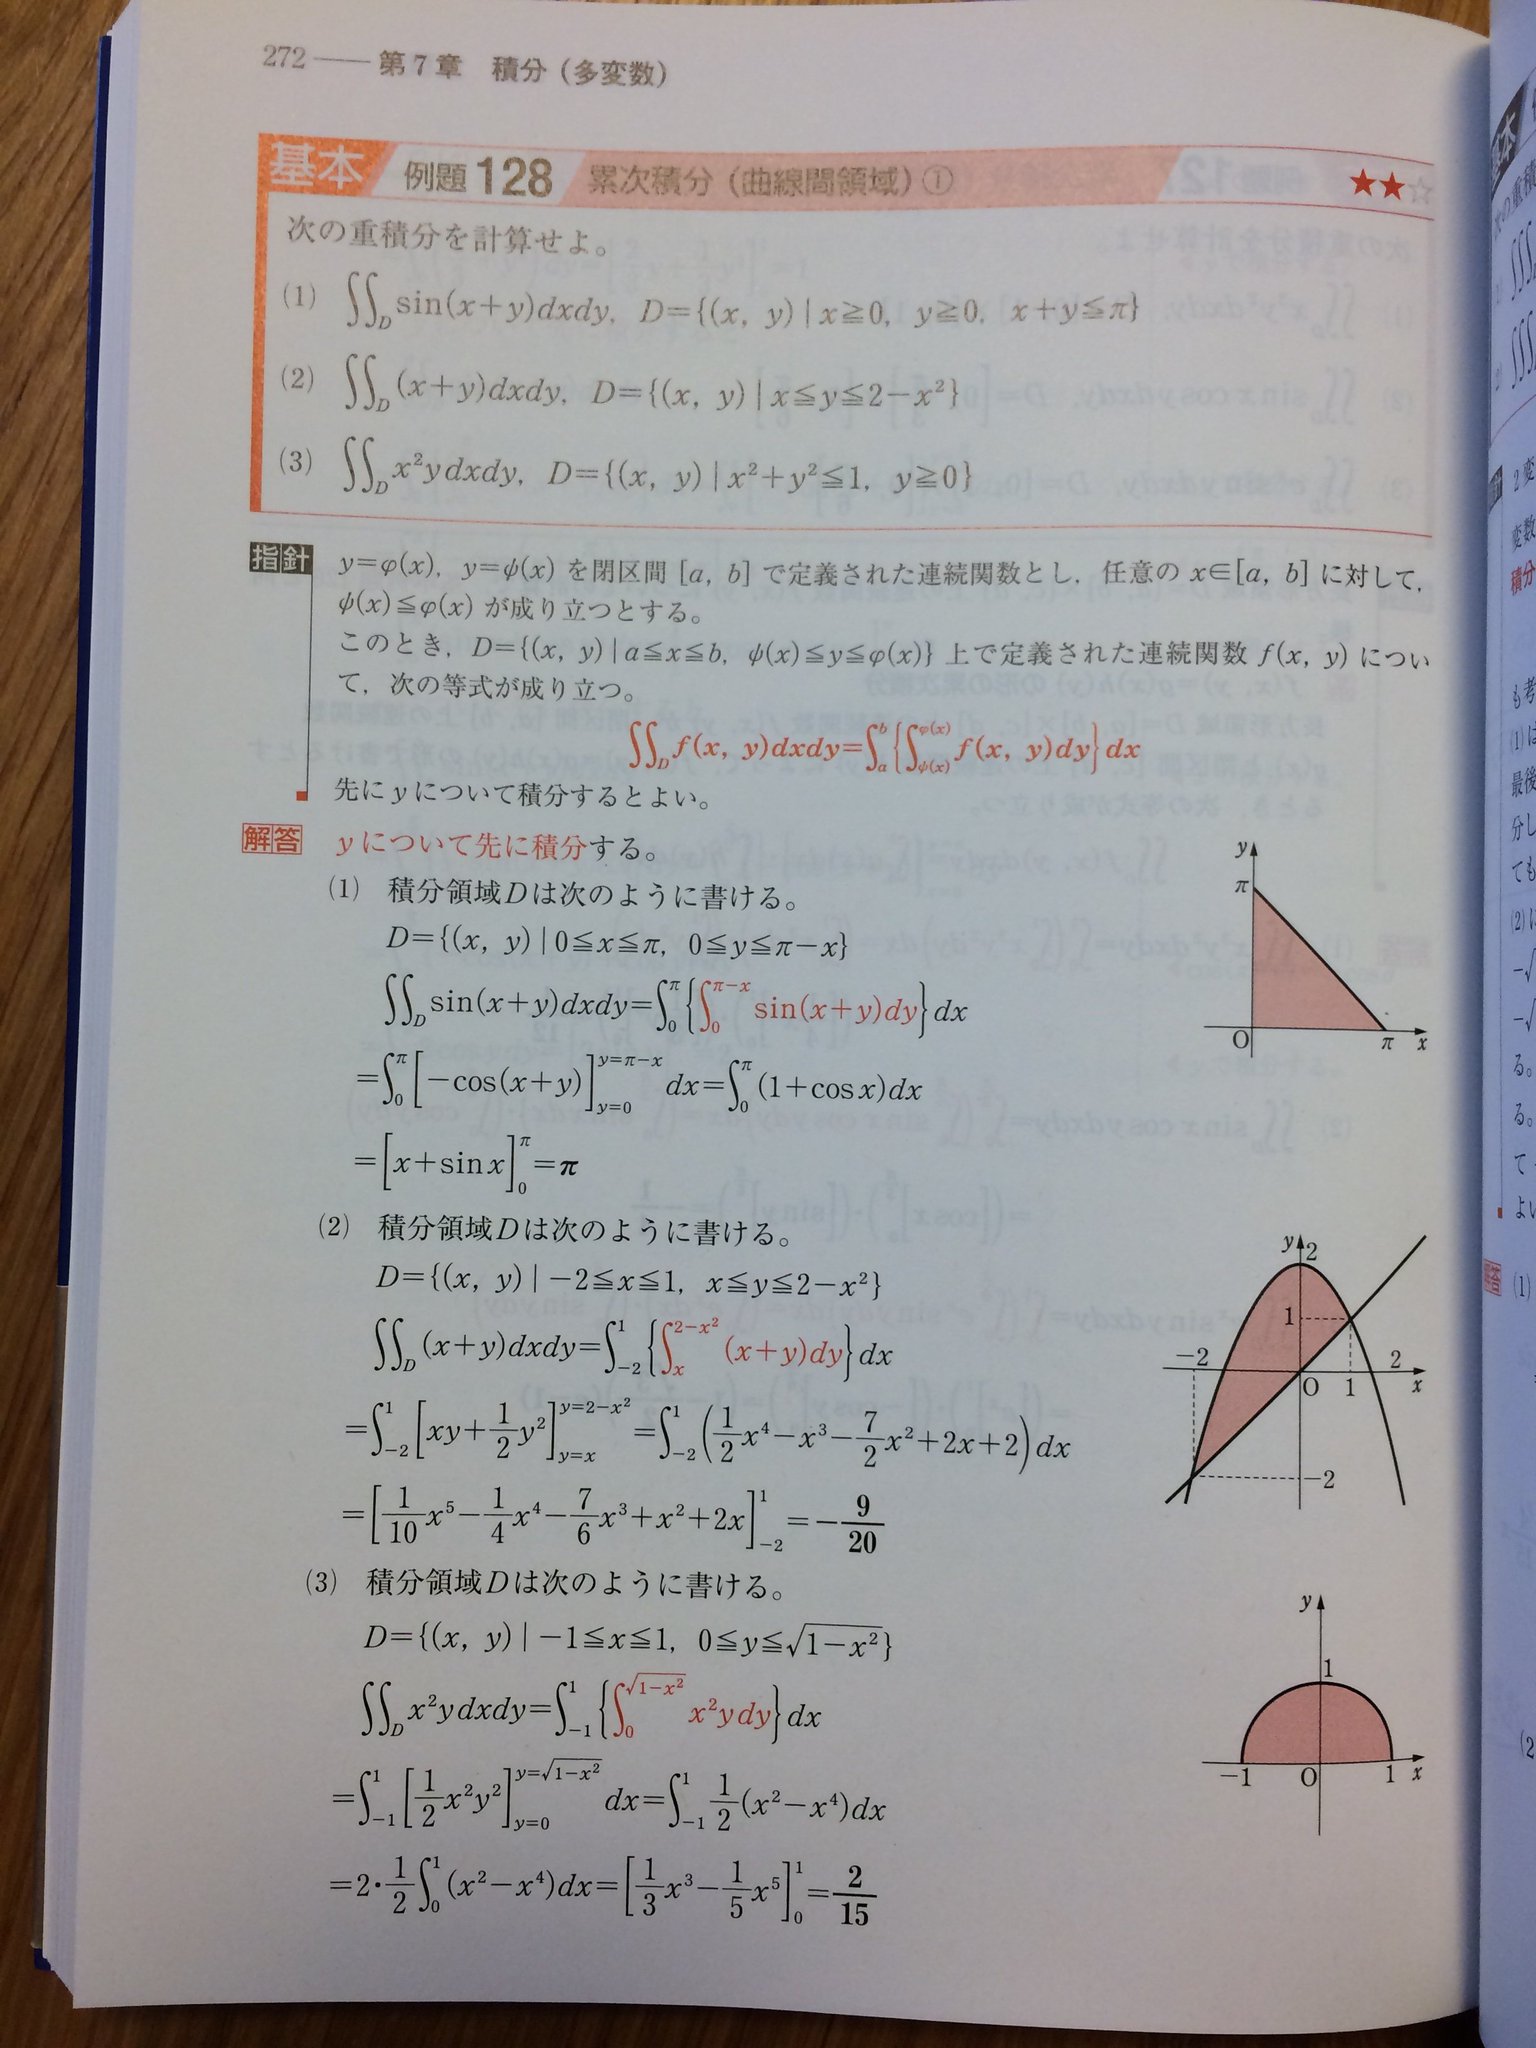 272 —— 第7章 積分（多変数）
基本 例題 128 累次積分（曲線間領域）① ★★☆
次の重積分を計算せよ。
(1) ∬_D sin(x+y)dxdy, D={(x, y)|x≧0, y≧0, x+y≦π}
(2) ∬_D (x+y)dxdy, D={(x, y)|x≦y≦2−x²}
(3) ∬_D x²ydxdy, D={(x, y)|x²+y²≦1, y≧0}
指針 y=φ(x), y=ψ(x) を閉区間 [a, b] で定義された連続関数とし，任意の x∈[a, b] に対して，
ψ(x)≦φ(x) が成り立つとする。
このとき，D={(x, y)|a≦x≦b, ψ(x)≦y≦φ(x)} 上で定義された連続関数 f(x, y) につい
て，次の等式が成り立つ。
∬_D f(x, y)dxdy=∫_a^b{∫_{ψ(x)}^{φ(x)} f(x, y)dy}dx
先に y について積分するとよい。
解答 y について先に積分する。
(1) 積分領域 D は次のように書ける。
D={(x, y)|0≦x≦π, 0≦y≦π−x}
∬_D sin(x+y)dxdy=∫_0^π{∫_0^{π−x} sin(x+y)dy}dx
=∫_0^π[−cos(x+y)]_{y=0}^{y=π−x} dx=∫_0^π(1+cos x)dx
=[x+sin x]_0^π=π
y
π
O π x
(2) 積分領域 D は次のように書ける。
D={(x, y)|−2≦x≦1, x≦y≦2−x²}
∬_D (x+y)dxdy=∫_{−2}^1{∫_x^{2−x²} (x+y)dy}dx
=∫_{−2}^1[xy+1/2 y²]_{y=x}^{y=2−x²}=∫_{−2}^1(1/2 x⁴−x³−7/2 x²+2x+2)dx
=[1/10 x⁵−1/4 x⁴−7/6 x³+x²+2x]_{−2}^1=−9/20
y 2
1
−2 2
O 1 x
−2
(3) 積分領域 D は次のように書ける。
D={(x, y)|−1≦x≦1, 0≦y≦√(1−x²)}
∬_D x²ydxdy=∫_{−1}^1{∫_0^{√(1−x²)} x²ydy}dx
=∫_{−1}^1[1/2 x²y²]_{y=0}^{y=√(1−x²)} dx=∫_{−1}^1 1/2(x²−x⁴)dx
=2・1/2∫_0^1(x²−x⁴)dx=[1/3 x³−1/5 x⁵]_0^1=2/15
y
1
−1 O 1 x